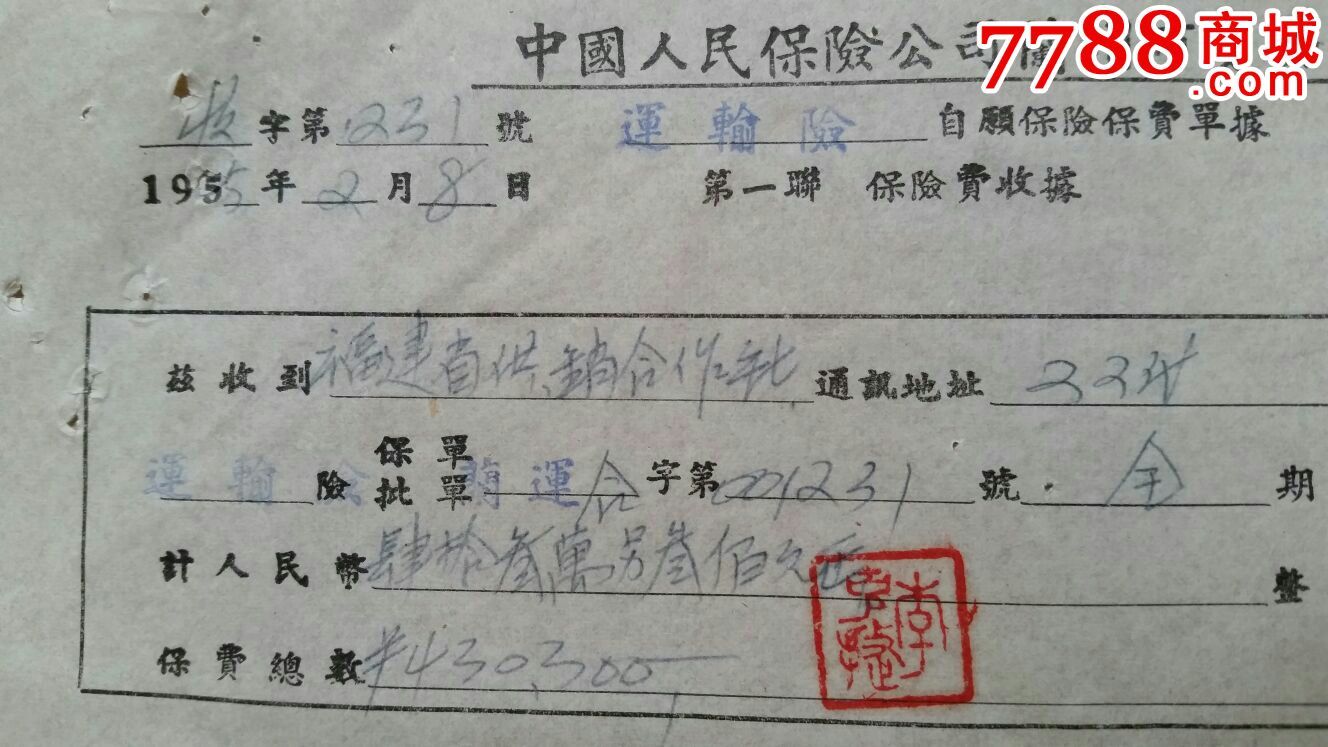 中國人民保險公司
7788商城
.com
收字第1231號
運輸險自願保險保費單據
1955年2月8日
第一聯 保險費收據
茲收到福建省供銷合作社通訊地址
運輸險險保單批單 運合字第001231號 全期
計人民幣肆拾叁萬另叁佰元正整
保費總數¥430,300